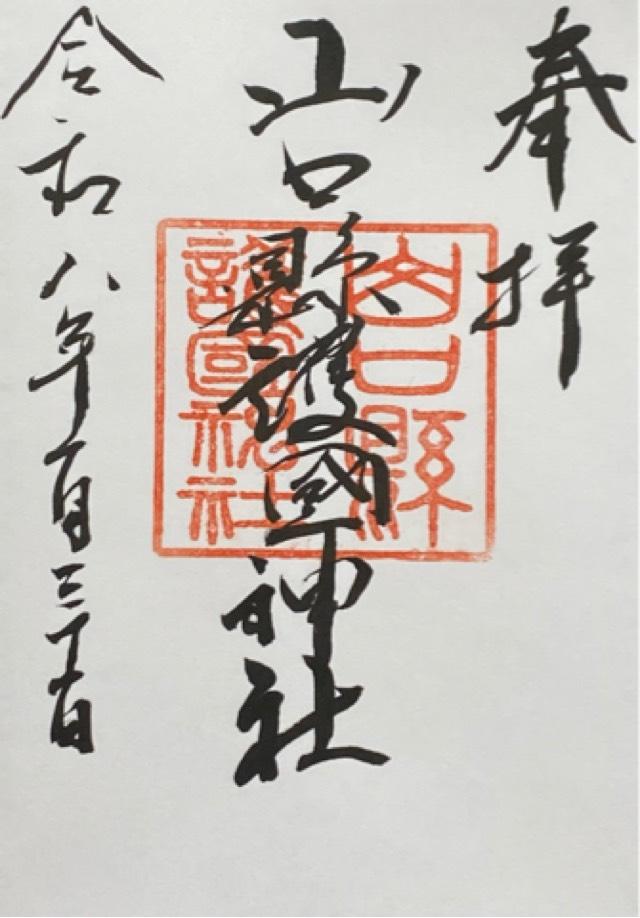 奉拝
山口縣護國神社
山口縣
護國神社
令和八年一月三十一日